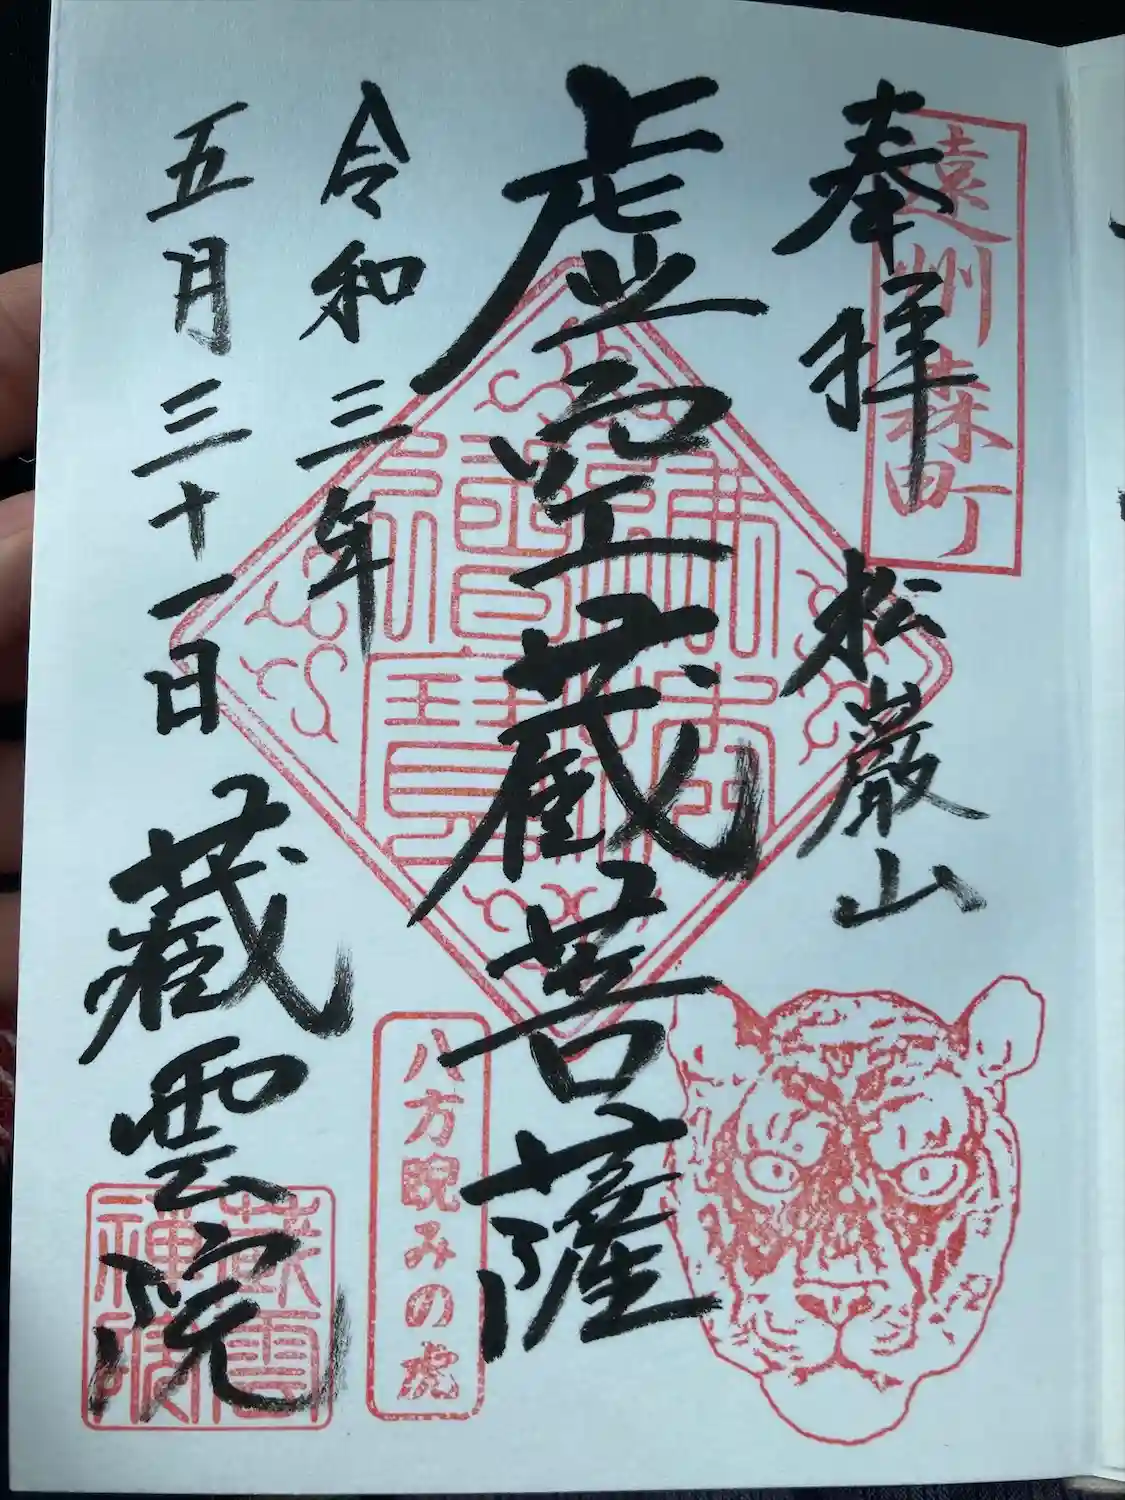 奉拝
遠州森町
松巖山
虚空蔵菩薩
令和三年
五月三十一日
蔵雲院
八方睨みの虎
蔵雲禅院